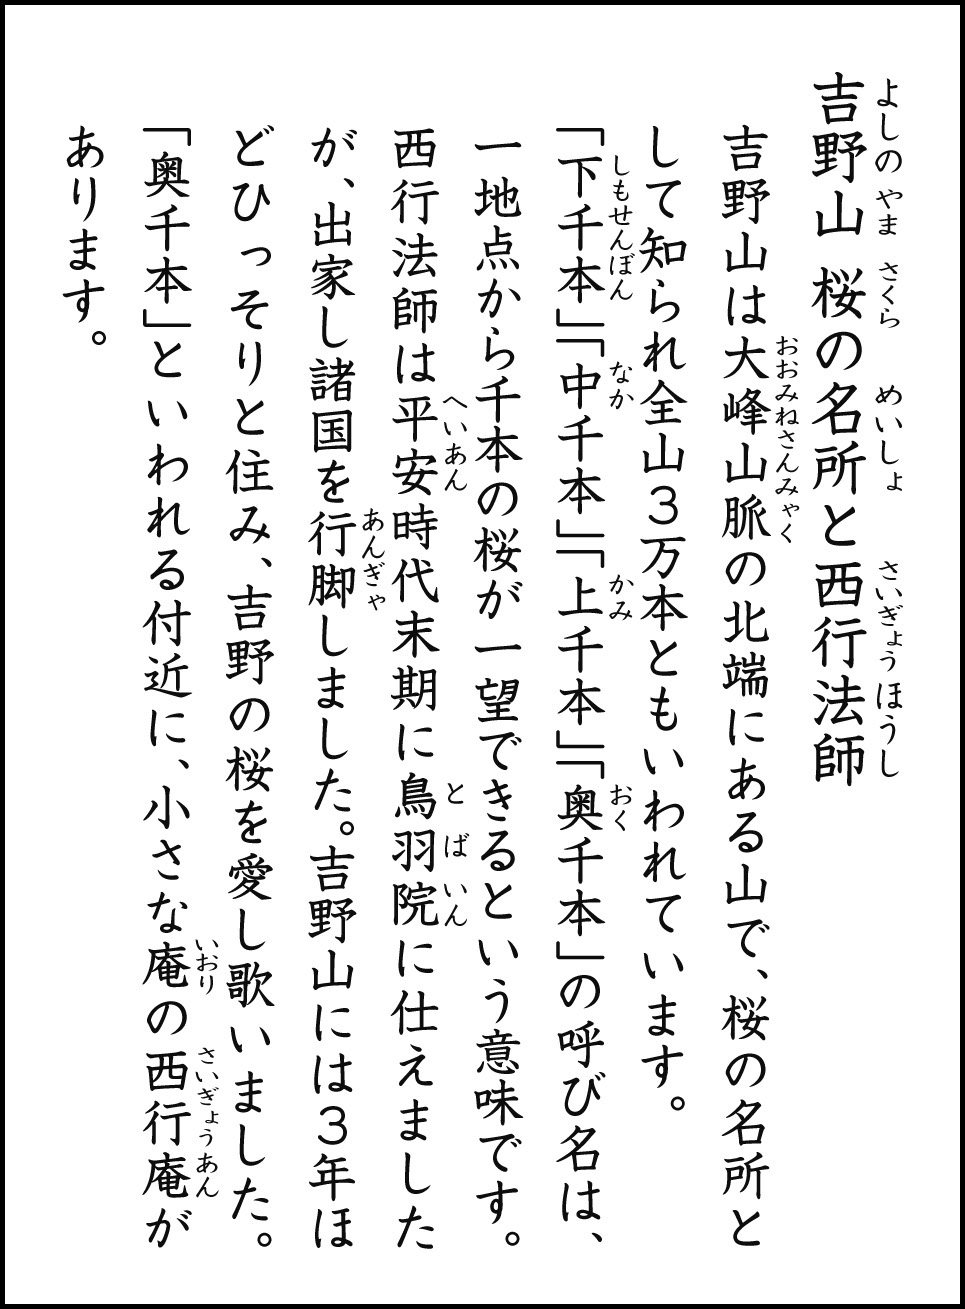 吉野山 桜の名所と西行法師
よしの やま さくら めいしょ さいぎょう ほうし
吉野山は大峰山脈の北端にある山で、桜の名所と
おおみねさんみゃく
して知られ全山３万本ともいわれています。
「下千本」「中千本」「上千本」「奥千本」の呼び名は、
しもせんぼん なか かみ おく
一地点から千本の桜が一望できるという意味です。
西行法師は平安時代末期に鳥羽院に仕えました
へいあん とばいん
が、出家し諸国を行脚しました。吉野山には３年ほ
あんぎゃ
どひっそりと住み、吉野の桜を愛し歌いました。
「奥千本」といわれる付近に、小さな庵の西行庵が
いおり さいぎょうあん
あります。